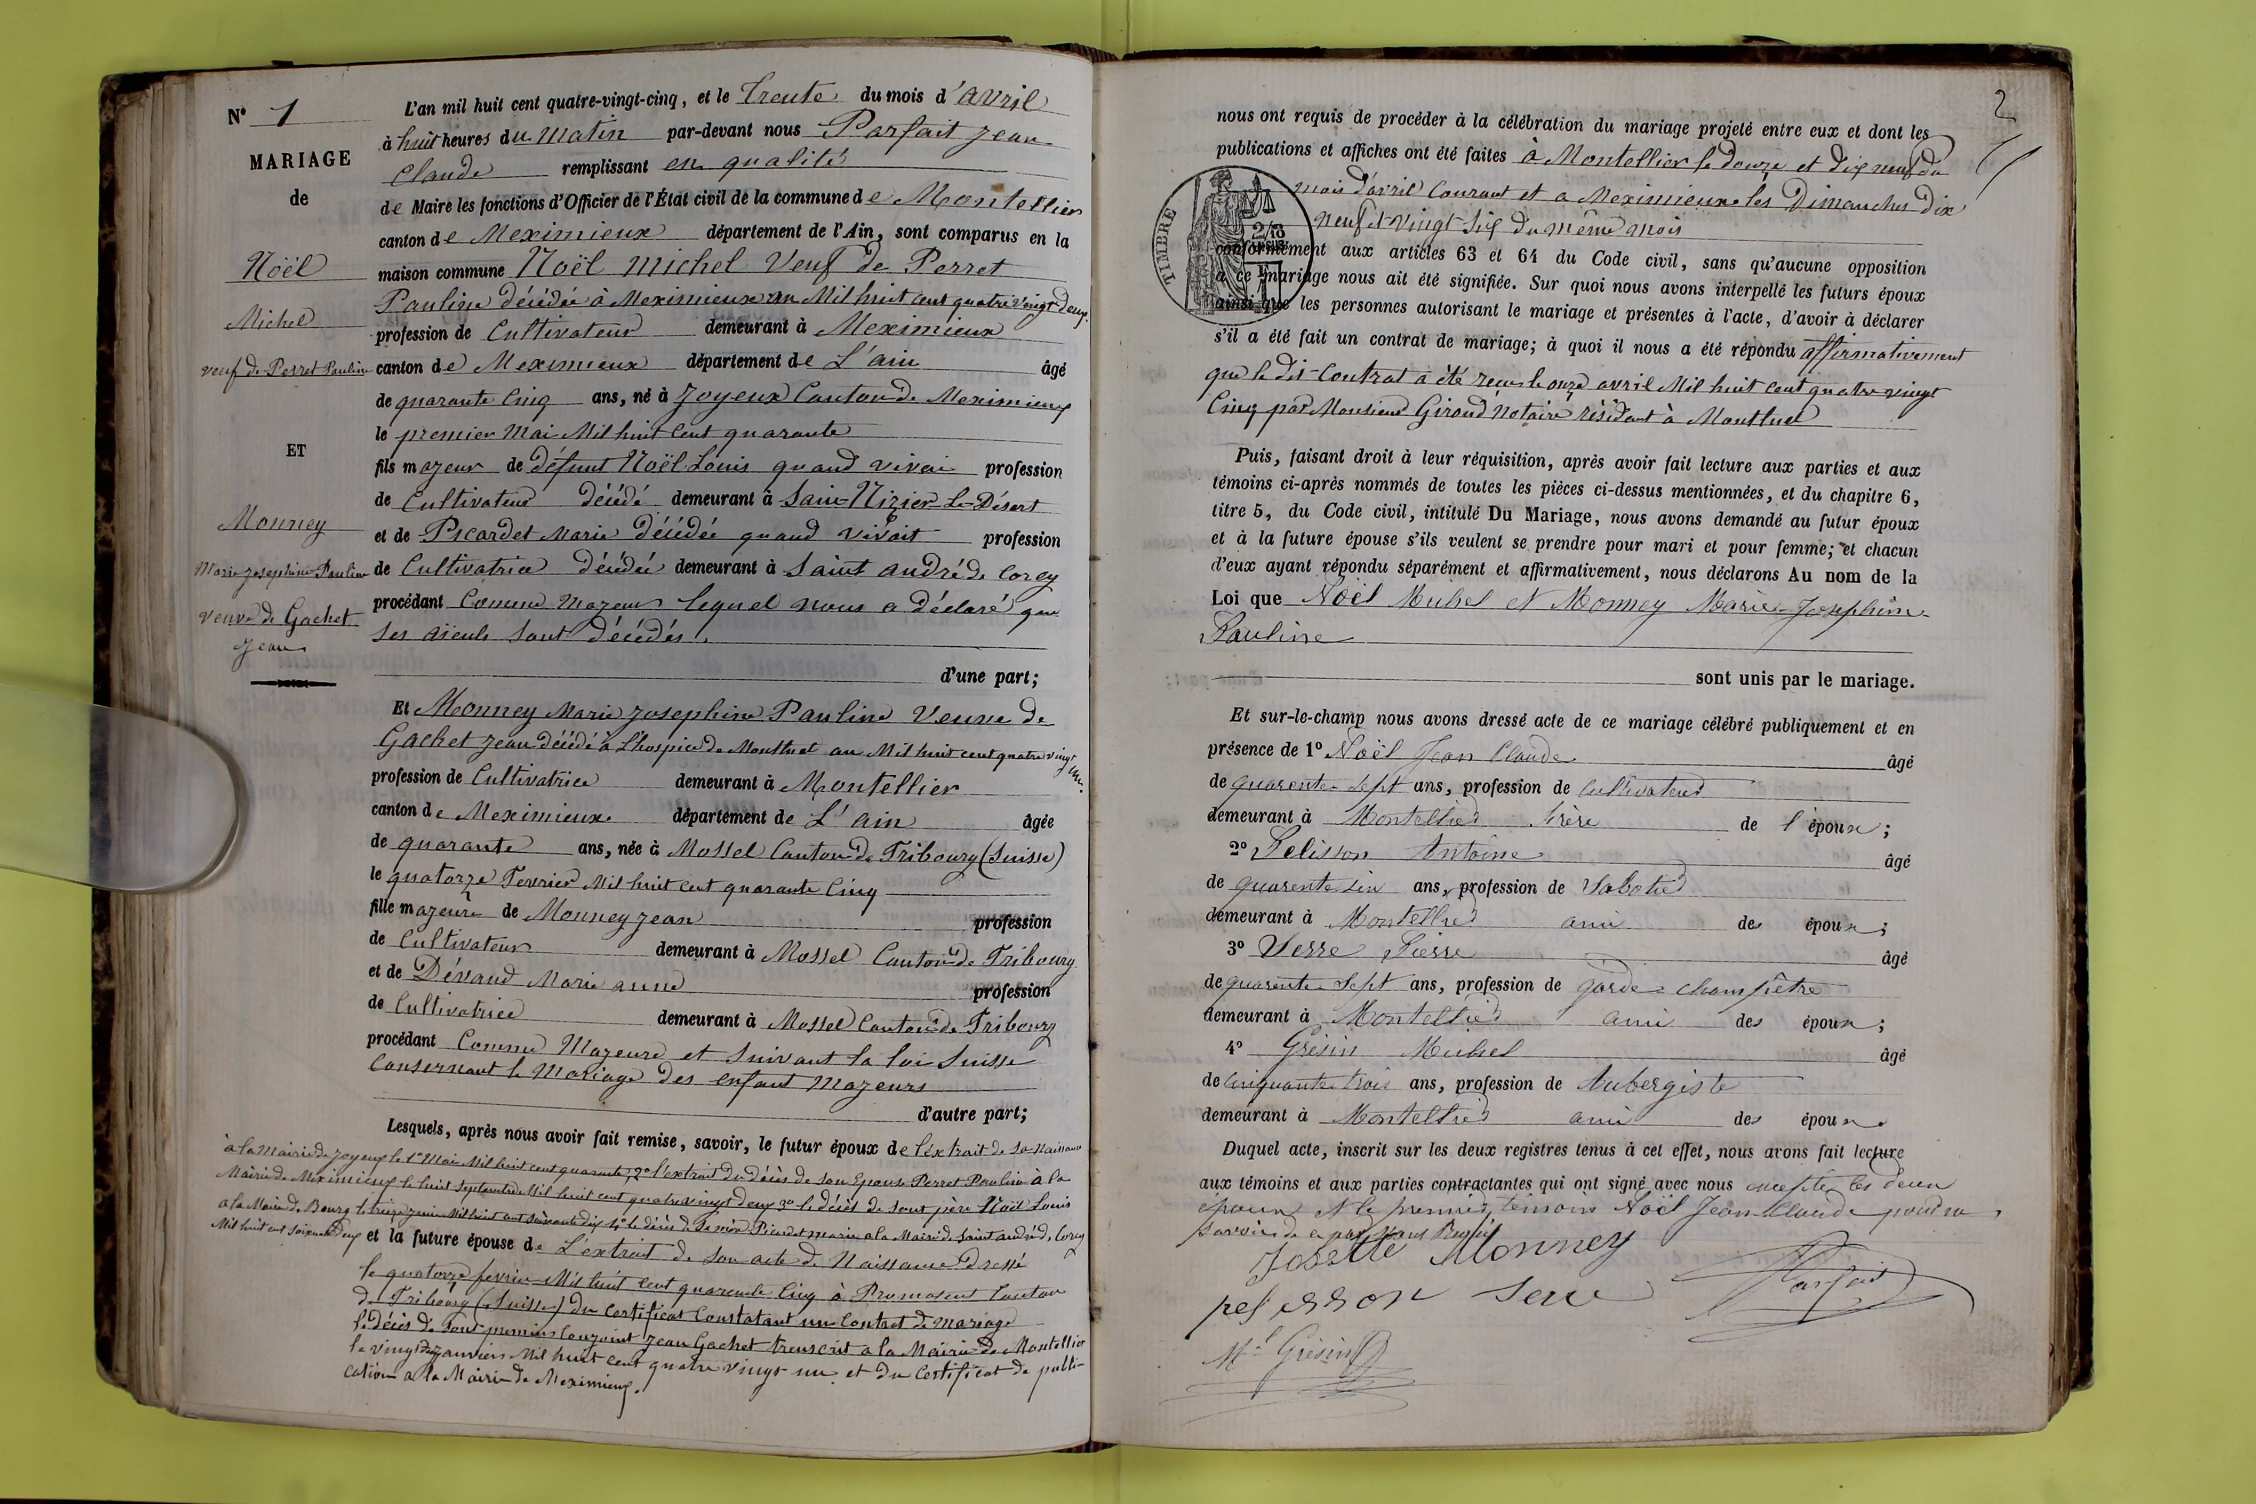 N° 1
MARIAGE
de
Noël
Michel
veuf de Perret Pauline
ET
Monney
Marie Josephine Pauline
veuve de Gachet
Jean
L'an mil huit cent quatre-vingt-cinq, et le Trente du mois d'avril
à huit heures du matin par-devant nous Parfait Jean
Claude remplissant en qualité
de Maire les fonctions d'Officier de l'État civil de la commune de Montellier
canton de Meximieux département de l'Ain, sont comparus en la
maison commune Noël Michel Veuf de Perret
Pauline décédée à Meximieux an Mil huit cent quatre vingt deux.
profession de Cultivateur demeurant à Meximieux
canton de Meximieux département de L'ain âgé
de quarante cinq ans, né à Joyeux Canton de Meximieux
le premier Mai Mil huit cent quarante
fils majeur de défunt Noël Louis quand vivai profession
de Cultivateur décédé demeurant à Sain-Nizier-Le-Désert
et de Picardet Marie décédée quand vivait profession
de Cultivatrice décédée demeurant à Saint andré de Corcy
procédant Comme Majeur lequel nous a déclaré que
ses aïeuls sont Décédés.
d'une part;
Et Monney Marie Josephine Pauline Veuve de
Gachet Jean décédé à L'hospice de Montluel an Mil huit cent quatre vingt un.
profession de Cultivatrice demeurant à Montellier
canton de Meximieux département de L'ain âgée
de quarante ans, née à Mossel Canton de Fribourg (Suisse)
le quatorze Fevrier Mil huit cent quarante Cinq
fille majeure de Monney Jean profession
de Cultivateur demeurant à Mossel Canton de Fribourg
et de Dévaud Marie anne profession
de Cultivatrice demeurant à Mossel Canton de Fribourg
procédant Comme Majeure et Suivant la loi Suisse
Consernant le Mariage des enfant Majeurs
d'autre part;
Lesquels, après nous avoir fait remise, savoir, le futur époux de l'éxtrait de sa Naissance
à la Mairie de Joyeux le 1er Mai Mil huit cent quarante, 2° l'extrait du décès de son Epouse Perret Pauline à la
Mairie de Meximieux le huit Septembre Mil huit cent quatre vingt deux 3° le décès de sont père Noël Louis
a la Mairie de Bourg le treize Mil huit cent soixante dix 4° le décès de sa mère Picardet marie a la Mairie de Saint andré de Corcy
Mil huit cent soixante deux et la future épouse de L'extrait de son acte de Naissance Dressé
le quatorze fevrier Mil huit cent quarante Cinq à Promasens Canton
de Fribourg (Suisse) du Certificat Constatant un Contrat de Mariage
le décès de sont premier Conjoint Jean Gachet transcrit a la Mairie de Montellier
le vingt janviers Mil huit cent quatre vingt un et du Certificat de publi-
cation a la Mairie de Meximieux.
2
nous ont requis de procéder à la célébration du mariage projeté entre eux et dont les
publications et affiches ont été faites à Montellier le douze et dix neuf du
mois d'avril Courant et a Meximieux les Dimanches Dix
neuf et vingt-six du même mois
TIMBRE
conformément aux articles 63 et 64 du Code civil, sans qu'aucune opposition
à ce mariage nous ait été signifiée. Sur quoi nous avons interpellé les futurs époux
ainsi que les personnes autorisant le mariage et présentes à l'acte, d'avoir à déclarer
s'il a été fait un contrat de mariage; à quoi il nous a été répondu affirmativement
que le dit-Contrat a été reçu le onze avril Mil huit cent quatre vingt
Cinq par Monsieur Giroud Notaire résidant à Montluel
Puis, faisant droit à leur réquisition, après avoir fait lecture aux parties et aux
témoins ci-après nommés de toutes les pièces ci-dessus mentionnées, et du chapitre 6,
titre 5, du Code civil, intitulé Du Mariage, nous avons demandé au futur époux
et à la future épouse s'ils veulent se prendre pour mari et pour femme; et chacun
d'eux ayant répondu séparément et affirmativement, nous déclarons Au nom de la
Loi que Noël Michel et Monney Marie-Josephine
Pauline
sont unis par le mariage.
Et sur-le-champ nous avons dressé acte de ce mariage célébré publiquement et en
présence de 1° Noël Jean Claude âgé
de quarente-sept ans, profession de Cultivateur
demeurant à Montellier frère de l'époux;
2° Pelisson Antoine âgé
de quarente six ans, profession de Sabotier
demeurant à Montellier ami des époux;
3° Serre Pierre âgé
de quarente-sept ans, profession de garde-champêtre
demeurant à Montellier ami des époux;
4° Grésin Michel âgé
de cinquante trois ans, profession de Aubergiste
demeurant à Montellier ami des époux.
Duquel acte, inscrit sur les deux registres tenus à cet effet, nous avons fait lecture
aux témoins et aux parties contractantes qui ont signé avec nous excepté les deux
époux et le premier témoin Noël Jean-Claude pour ne
savoir de ce par nous Requis
Josette Monney
pelisson Serre Parfait
Mel Grésin